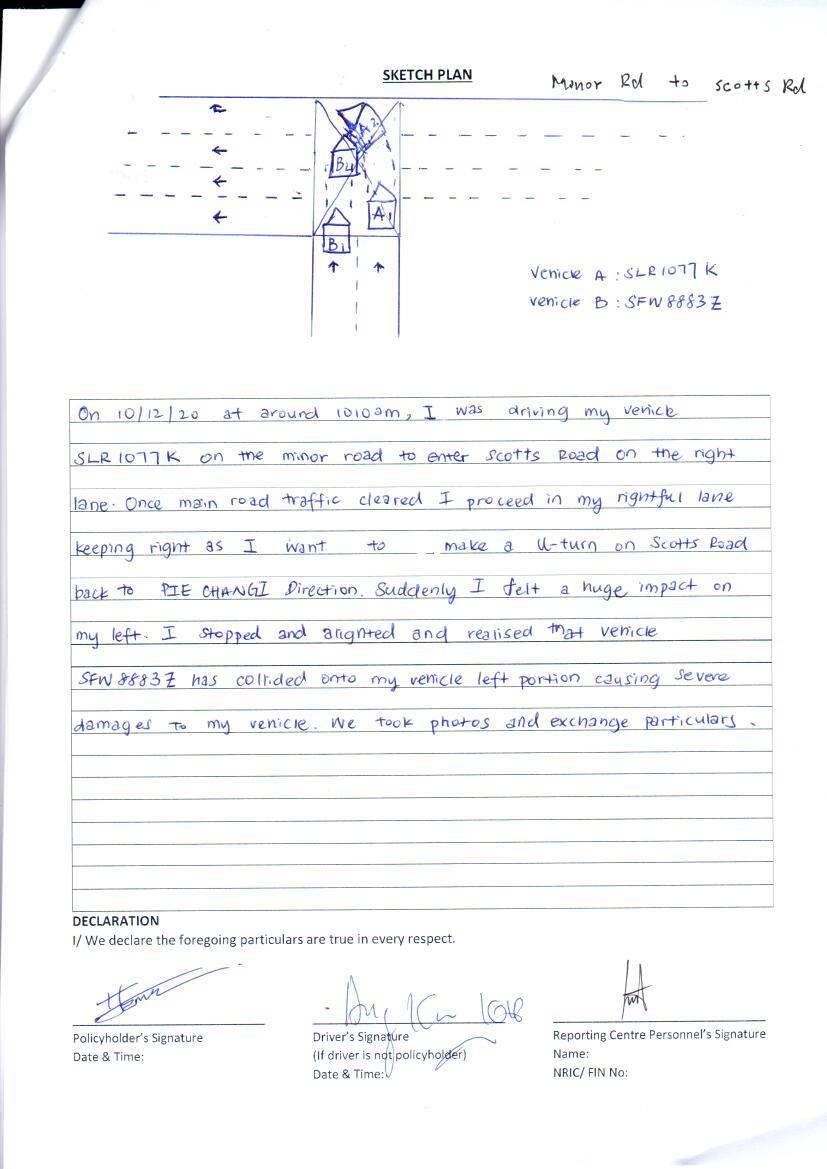 SKETCH PLAN
Minor Rd to Scotts Rd
A2
B4
A1
B1
Vehicle A : SLR1077K
Vehicle B : SFW8883Z
On 10/12/20 at around 1010am, I was driving my vehicle
SLR1077K on the minor road to enter Scotts Road on the right
lane. Once main road traffic cleared I proceed in my rightful lane
keeping right as I want to make a U-turn on Scotts Road
back to PIE CHANGI Direction. Suddenly I felt a huge impact on
my left. I stopped and alighted and realised that vehicle
SFW8883Z has collided onto my vehicle left portion causing severe
damages to my vehicle. We took photos and exchange particulars.
DECLARATION
I/ We declare the foregoing particulars are true in every respect.
Policyholder's Signature
Date & Time:
Driver's Signature
(If driver is not policyholder)
Date & Time:
Reporting Centre Personnel's Signature
Name:
NRIC/ FIN No: